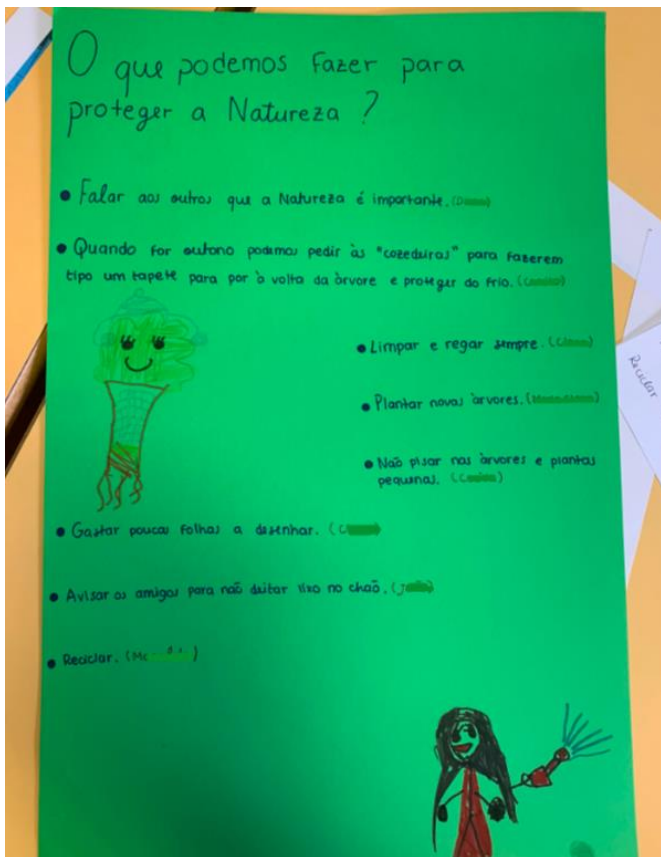 O que podemos fazer para
proteger a Natureza ?
• Falar aos outros que a Natureza é importante. (D
• Quando for outono podemos pedir às "cozedeiras" para fazerem
tipo um tapete para por à volta da àrvore e proteger do frio. (
• Limpar e regar sempre. (
• Plantar novas àrvores. (
• Não pisar nas àrvores e plantas
pequenas. (
• Gastar poucas folhas a desenhar. (
• Avisar os amigos para não deitar lixo no chão. (J
• Reciclar. (M
Reciclar